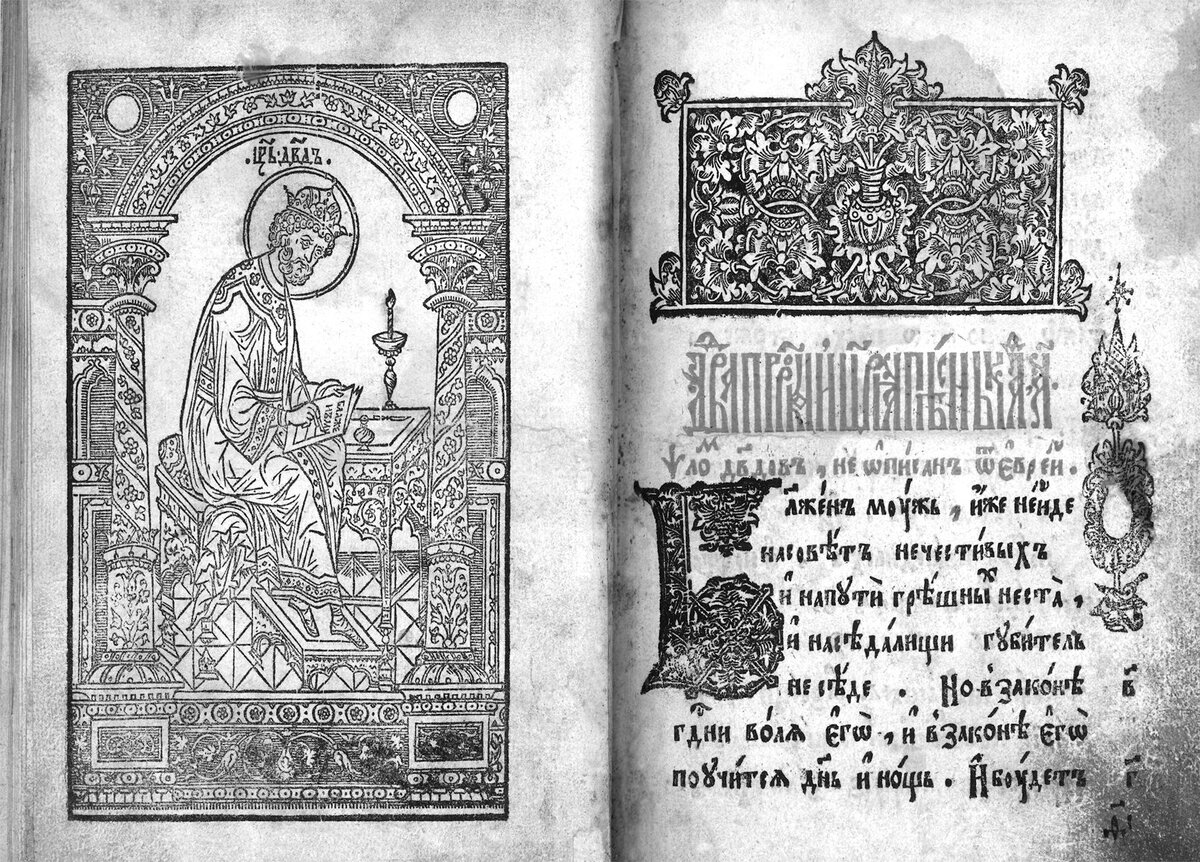 ·цр҃ь·дв҃дъ·
Ѱлоⷨ дв҃довъ, не ѡ҆писанъ ѿ є҆вре́й.
Бл҃же́нъ мꙋ́жъ, и҆́же не и҆́де
на совѣ́тъ нечести́выхъ
и҆ на пꙋтѝ грѣ́шныⷯ не ста̀,
и҆ на сѣда́лищи гꙋби́тель
не сѣ́де. Но в̾зако́нѣ
гдⷭ҇ни во́лѧ є҆гѡ̀, и҆ в̾зако́нѣ є҆гѡ̀
поꙋчи́тсѧ дн҃ь и҆ но́щь. И҆ бꙋ́детъ
в҃
г҃